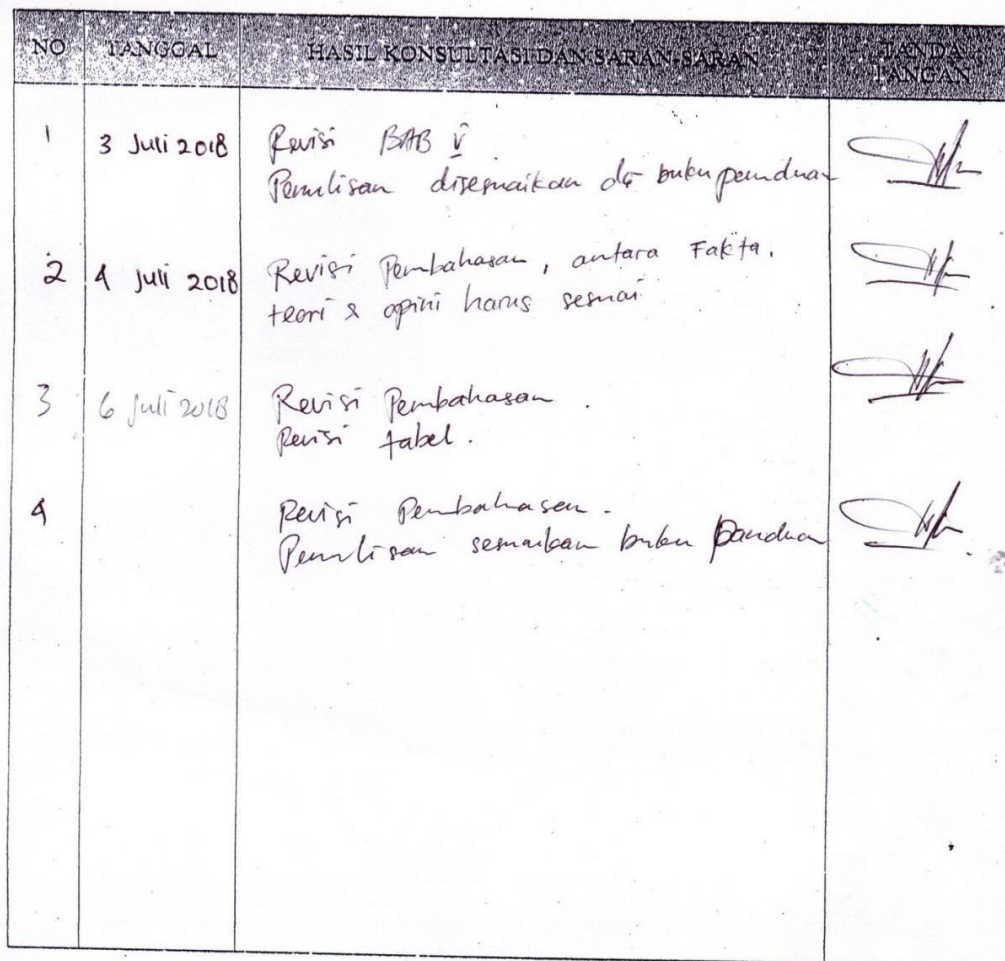 NO TANGGAL HASIL KONSULTASI DAN SARAN-SARAN TANDA
TANGAN
1 3 Juli 2018 Revisi BAB V
Penulisan disesuaikan dg buku panduan
2 4 Juli 2018 Revisi Pembahasan, antara Fakta,
teori & opini harus sesuai
3 6 Juli 2018 Revisi Pembahasan.
Revisi tabel.
4 Revisi Pembahasan.
Penulisan sesuaikan buku panduan